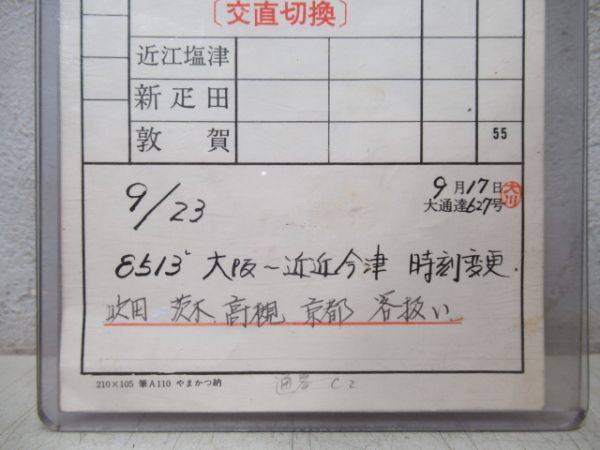 〔交直切換〕
近江塩津
新疋田
敦賀 55
9月17日
大通達627号
大川
9/23
8513 大阪〜近近今津 時刻変更.
吹田 茨木、高槻 京都 客扱い.
210×105 筆A110 やまかつ納
C2